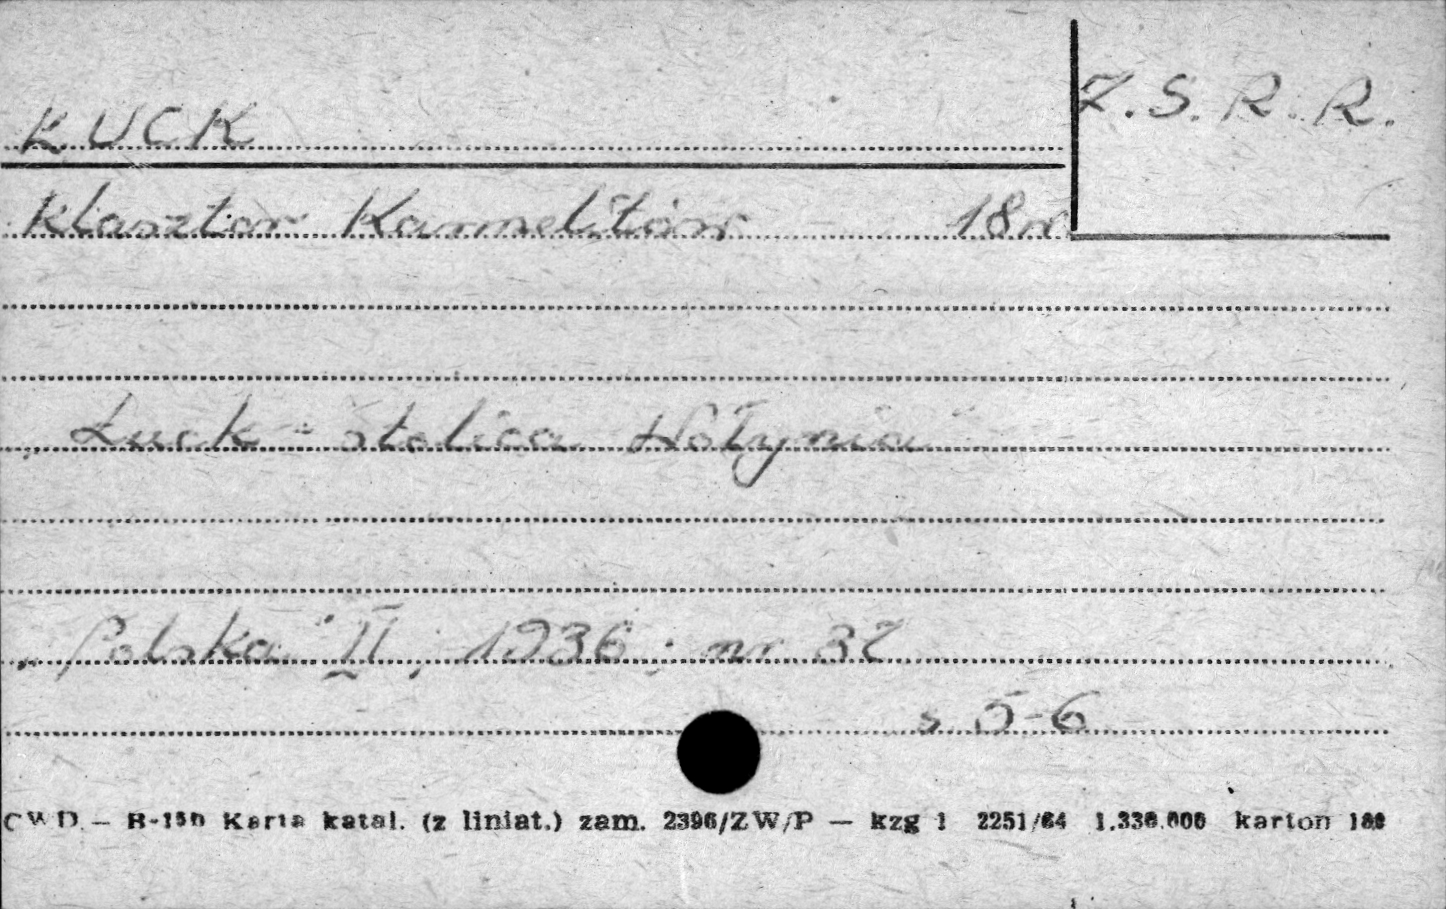 ŁUCK
Z.S.R.R.
Klasztor Karmelitów 18w
„Łuck - stolica Wołynia"
„Polska" II, 1936; nr 37
s 5-6
CWD. — B-150 Karta katal. (z liniat.) zam. 2396/ZW/P — kzg 1 2251/64 1.330.000 karton 180